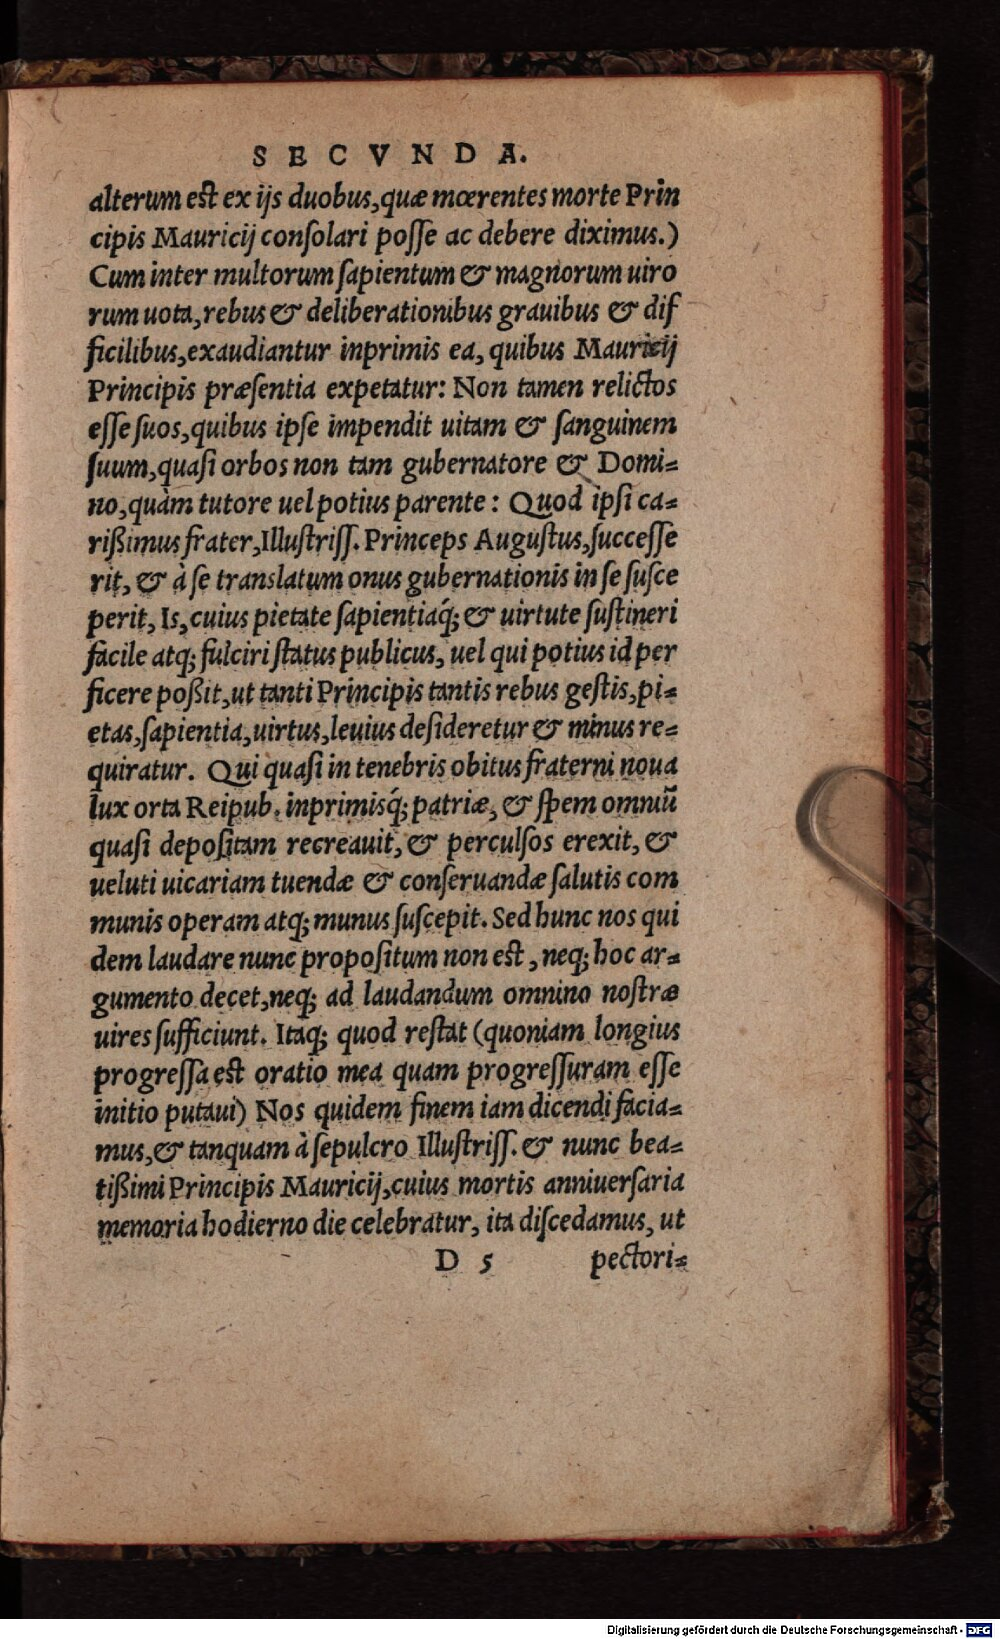 SECVNDA.
alterum est ex ijs duobus,quæ mœrentes morte Prin
cipis Mauricij conſolari poſſe ac debere diximus.)
Cum inter multorum ſapientum & magnorum uiro
rum uota,rebus & deliberationibus grauibus & dif
ficilibus,exaudiantur inprimis ea, quibus Mauricij
Principis præſentia expetatur: Non tamen relictos
eſſe ſuos,quibus ipſe impendit uitam & ſanguinem
ſuum,quaſi orbos non tam gubernatore & Domi=
no,quàm tutore uel potius parente: Quod ipſi ca=
rißimus frater,Illuſtriſſ. Princeps Auguſtus,ſucceſſe
rit, & à ſe translatum onus gubernationis in ſe ſuſce
perit, Is,cuius pietate ſapientiaq́; & uirtute ſuſtineri
facile atq; fulciri ſtatus publicus, uel qui potius id per
ficere poßit,ut tanti Principis tantis rebus geſtis,pi=
etas,ſapientia,uirtus,leuius deſideretur & minus re=
quiratur. Qui quaſi in tenebris obitus fraterni noua
lux orta Reipub. inprimisq́; patriæ, & ſpem omniũ
quaſi depoſitam recreauit, & perculſos erexit, &
ueluti uicariam tuendæ & conſeruandæ ſalutis com
munis operam atq; munus ſuſcepit. Sed hunc nos qui
dem laudare nunc propoſitum non est, neq; hoc ar=
gumento decet,neq; ad laudandum omnino noſtræ
uires ſufficiunt. Itaq; quod reſtat (quoniam longius
progreſſa est oratio mea quam progreſſuram eſſe
initio putaui) Nos quidem finem iam dicendi facia=
mus,& tanquam à ſepulcro Illuſtriſſ. & nunc bea=
tißimi Principis Mauricij,cuius mortis anniuerſaria
memoria hodierno die celebratur, ita diſcedamus, ut
D 5 pectori=
Digitalisierung gefördert durch die Deutsche Forschungsgemeinschaft - DFG